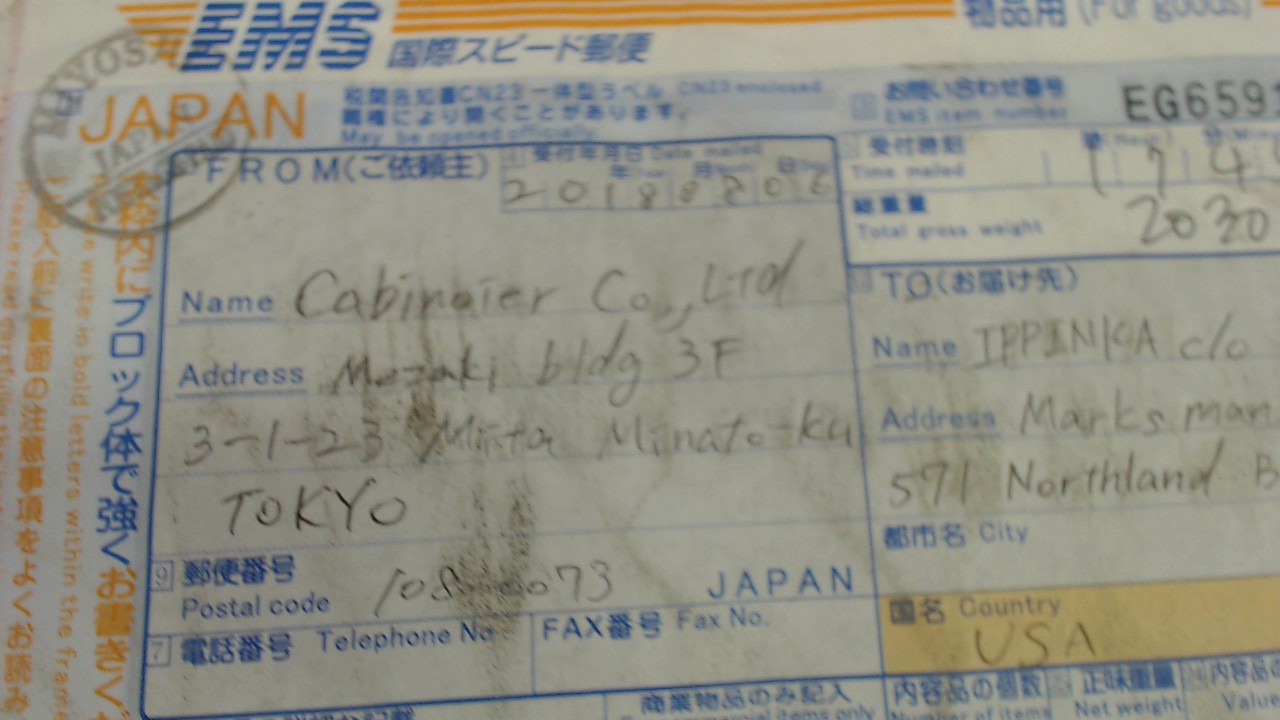 EMS 国際スピード郵便
物品用 (For goods)
JAPAN
税関告知書CN23 一体型ラベル CN23 enclosed
職権により開くことがあります。
May be opened officially
お問い合わせ番号
EMS item number
EG659
FROM(ご依頼主)
受付年月日 Date mailed
年 月 日
20180806
受付時刻
Time mailed
174
総重量
Total gross weight
2030
Name Cabinoier Co.,LTd
Address Mozaki bldg 3F
3-1-23 Mita Minato-ku
TOKYO
9 郵便番号
Postal code 108-0073 JAPAN
7 電話番号 Telephone No
FAX番号 Fax No.
TO(お届け先)
Name IPPINKA c/o
Address Marksman
571 Northland B
都市名 City
国名 Country
USA
商業物品のみ記入
items only
内容品の個数
Number of items
正味重量
Net weight
内容品の
Value
本枠内にブロック体で強くお書きく
write in bold letters within the frame
ご記入前に裏面の注意事項をよくお読み